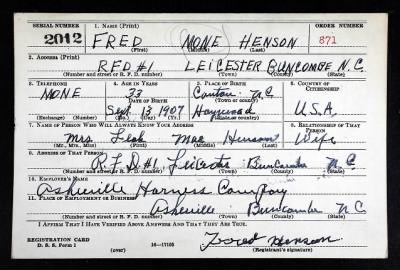 SERIAL NUMBER 1. NAME (Print) ORDER NUMBER
2012 FRED MONE HENSON 871
(First) (Middle) (Last)
2. ADDRESS (Print)
RFD #1 LEICESTER BUNCOMBE N.C.
(Number and street or R. F. D. number) (Town) (County) (State)
3. TELEPHONE 4. AGE IN YEARS 5. PLACE OF BIRTH 6. COUNTRY OF CITIZENSHIP
NONE 33 Canton N.C.
DATE OF BIRTH (Town or county)
Sept 13 1907 Haywood U.S.A.
(Mo.) (Day) (Yr.) (State or country)
7. NAME OF PERSON WHO WILL ALWAYS KNOW YOUR ADDRESS 8. RELATIONSHIP OF THAT PERSON
Mrs. Mae Henson Wife
(Mr., Mrs., Miss) (First) (Middle) (Last)
9. ADDRESS OF THAT PERSON
R.F.D #1 Leicester Buncombe N.C.
(Number and street or R. F. D. number) (Town) (County) (State)
10. EMPLOYER'S NAME
Asheville Harness Company
11. PLACE OF EMPLOYMENT OR BUSINESS
Asheville Buncombe N.C.
(Number and street or R. F. D. number) (Town) (County) (State)
I AFFIRM THAT I HAVE VERIFIED ABOVE ANSWERS AND THAT THEY ARE TRUE.
REGISTRATION CARD
D. S. S. Form 1 (over) 16—17105 Fred Henson
(Registrant's signature)